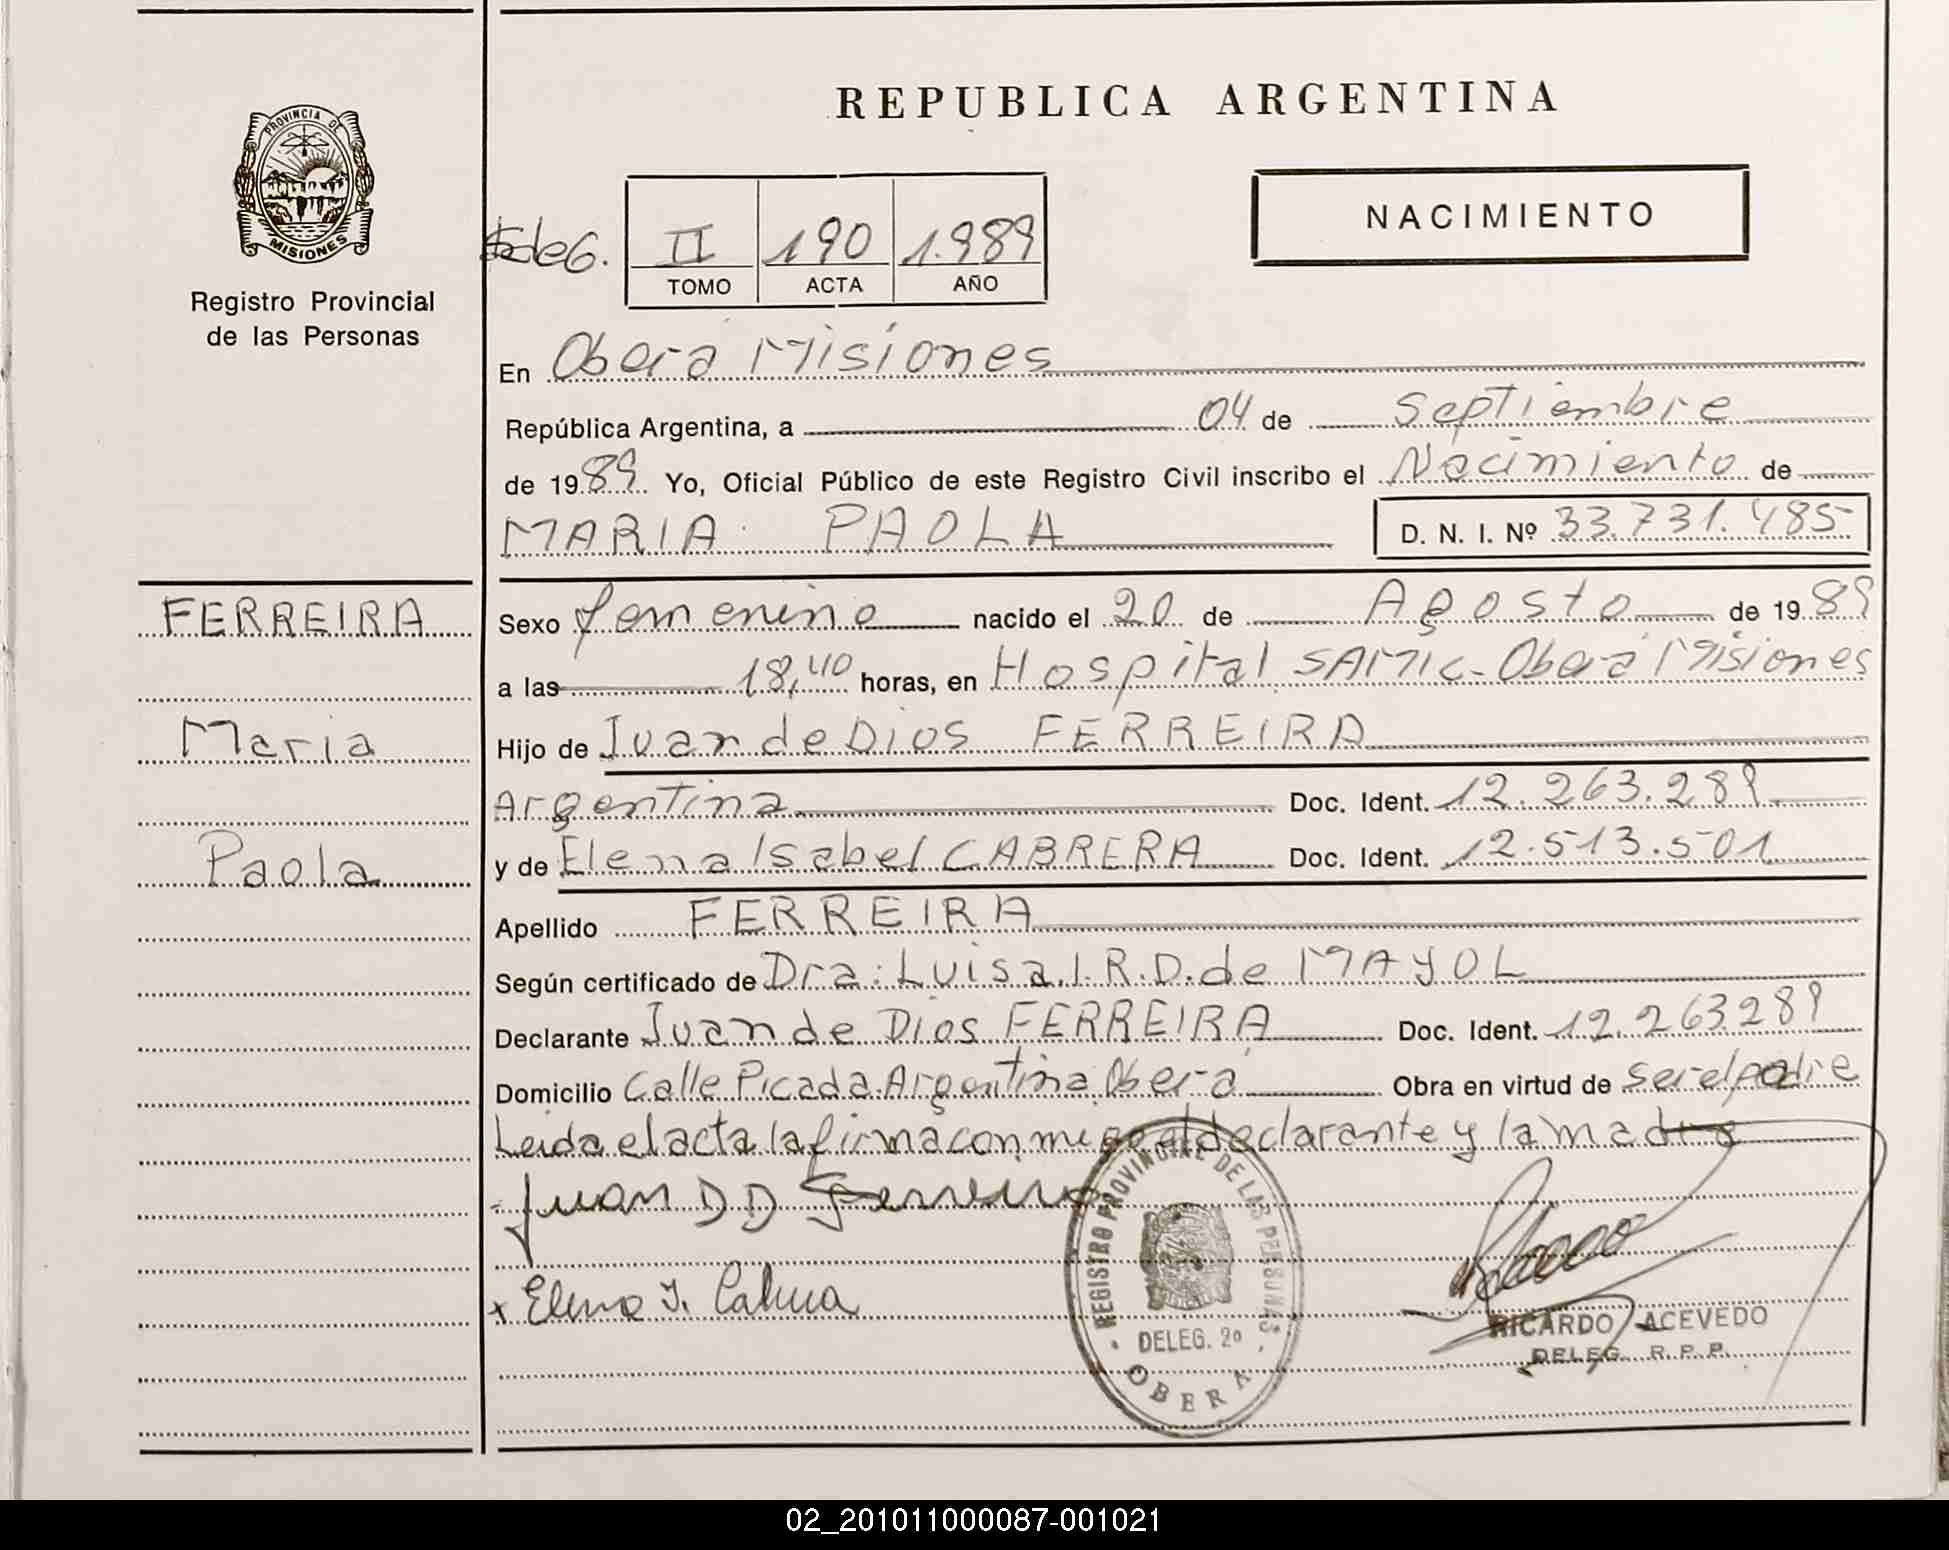 REPUBLICA ARGENTINA
PROVINCIA DE
MISIONES
Registro Provincial
de las Personas
NACIMIENTO
II 190 1.989
TOMO ACTA AÑO
En Obera Misiones
República Argentina, a 04 de Septiembre
de 1989. Yo, Oficial Público de este Registro Civil inscribo el Nacimiento de
MARIA PAOLA D. N. I. Nº 33.731.485
FERREIRA
Maria
Paola
Sexo femenino nacido el 20 de Agosto de 1989
a las 18,40 horas, en Hospital SAMIC-Obera Misiones
Hijo de Juan de Dios FERREIRA
Argentina Doc. Ident. 12.263.289
y de Elena Isabel CABRERA Doc. Ident. 12.513.501
Apellido FERREIRA
Según certificado de Dra: Luisa.I.R.D.de MAYOL
Declarante Juan de Dios FERREIRA Doc. Ident. 12.263289
Domicilio Calle Picada Argentina Oberá Obra en virtud de ser el padre
Leida el acta la firma con migo el declarante y la madre
Juan D D Ferreira
Elena I. Cabrera
REGISTRO PROVINCIAL DE LAS PERSONAS
DELEG. 2º
OBERA
RICARDO ACEVEDO
DELEG. R. P. P.
02_201011000087-001021